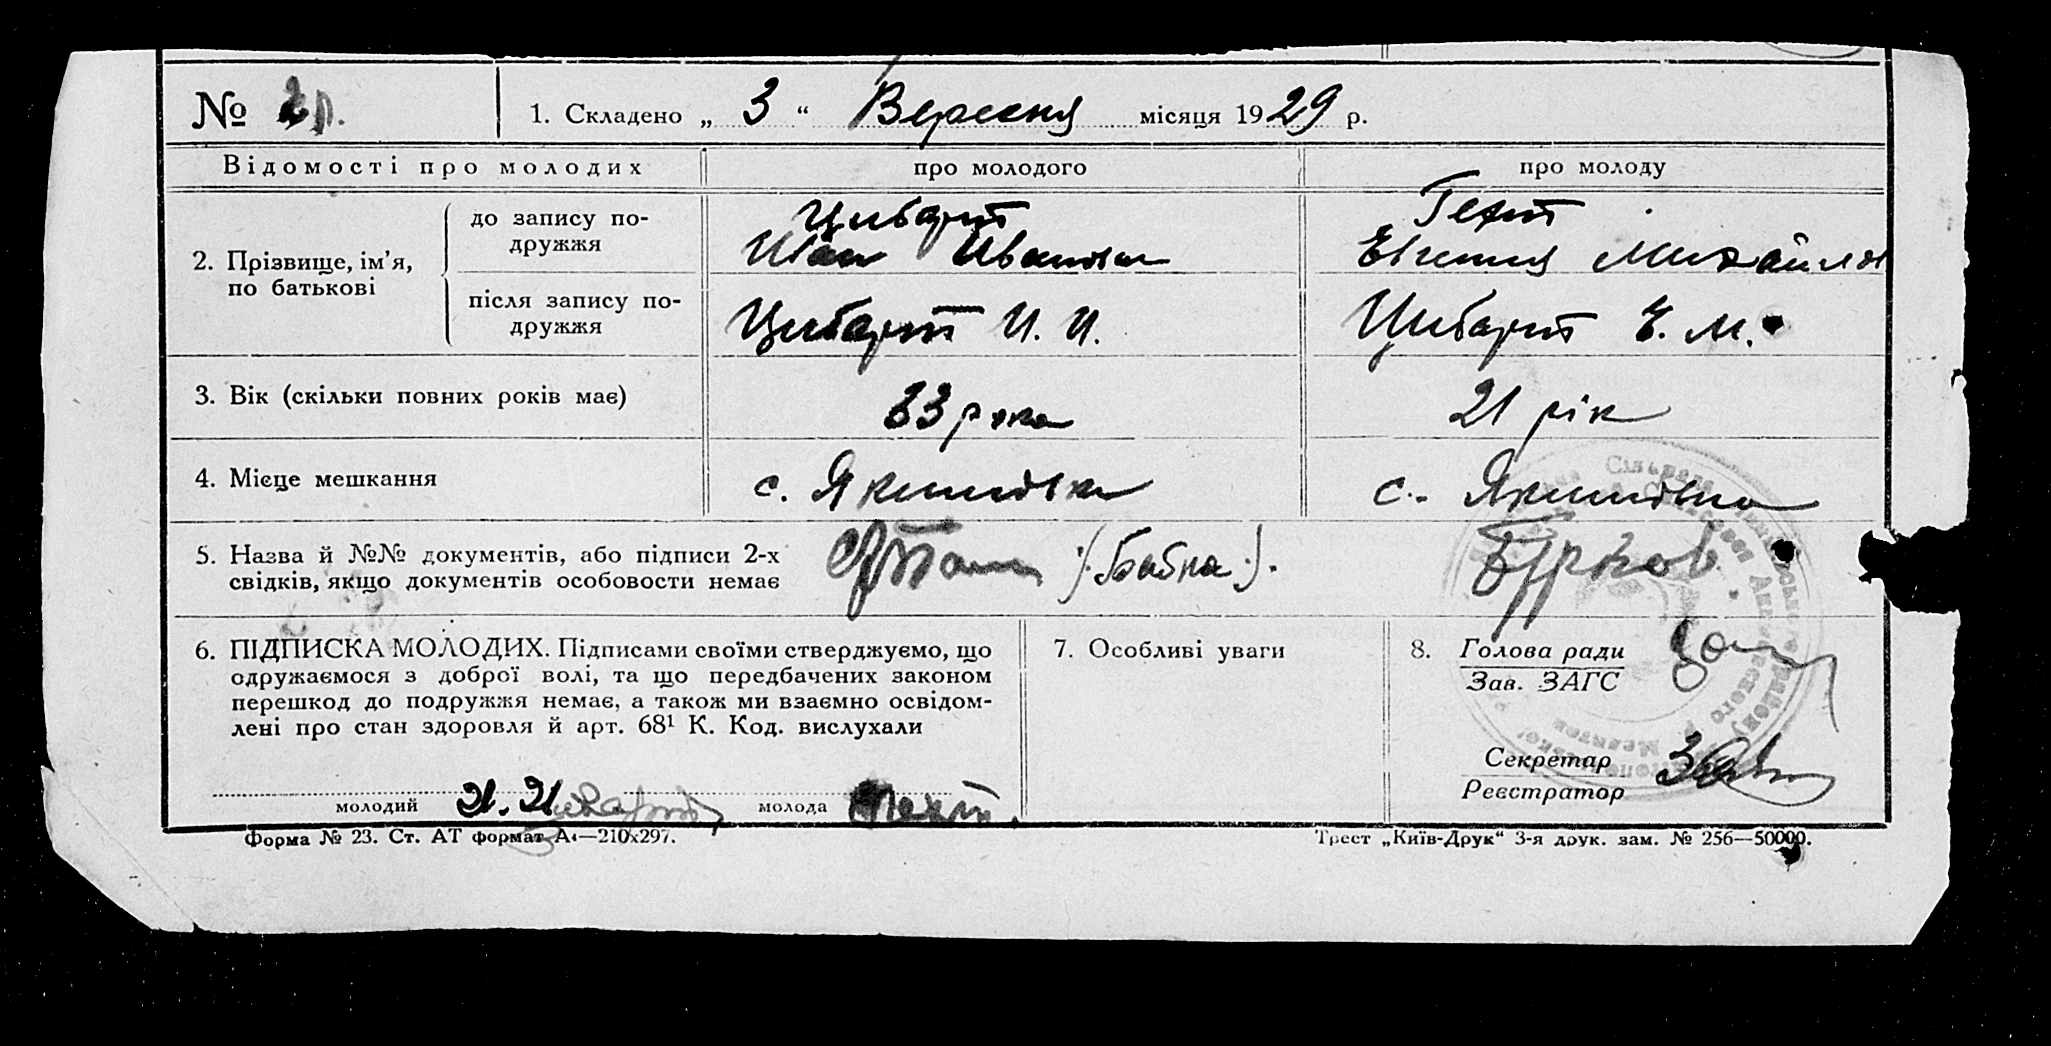 №
1. Складено „ 3 “ Вересня місяця 1929 р.
Відомості про молодих
про молодого
про молоду
2. Прізвище, ім’я, по батькові
до запису по-
дружжя
Цибарт
Иван Иванович
Гехт
Евгения Михайлов
після запису по-
дружжя
Цибарт И. И.
Цибарт Е. М.
3. Вік (скільки повних років має)
33 роки
21 рік
4. Місце мешкання
с. Якимовка
с. Якимовка
5. Назва й №№ документів, або підписи 2-х
свідків, якщо документів особовости немає
6. ПІДПИСКА МОЛОДИХ. Підписами своїми стверджуємо, що
одружаємося з доброї волі, та що передбачених законом
перешкод до подружжя немає, а також ми взаємно освідом-
лені про стан здоровля й арт. 68¹ К. Код. вислухали
молодий И. И. Цибарт молода Гехт.
7. Особливі уваги
8. Голова ради
Зав. ЗАГС
Секретар
Реєстратор
Форма № 23. Ст. АТ формат А4—210х297.
Трест „Київ-Друк“ 3-я друк. зам. № 256—50000.